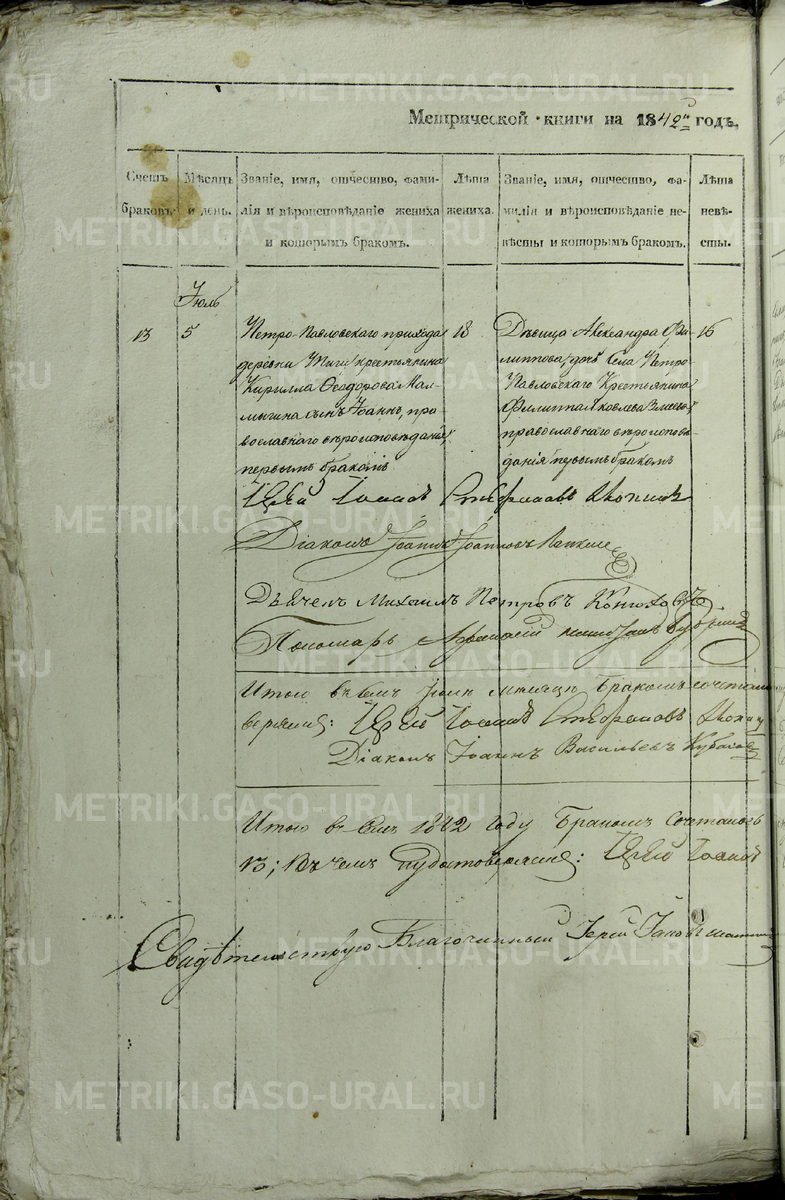 Метрической книги на 1842й годъ.
Счетъ браковъ.
Мѣсяцъ и день.
Званіе, имя, отчество, фами-
лія и вѣроисповѣданіе жениха
и которымъ бракомъ.
Лѣта
жениха.
Званіе, имя, отчество, фа-
милія и вѣроисповѣданіе не-
вѣсты и которымъ бракомъ.
Лѣта
невѣ-
сты.
Іюль
13
5
Петро-Павловскаго прихода
деревни крестьянина
Кирилла Ѳеодорова Мал-
мыгина сынъ Іоаннъ, пра
вославнаго вѣроисповѣданія,
первымъ бракомъ
18
Дѣвица Александра Фи-
липпова, дочь Села Петро
Павловскаго Крестьянина
Филиппа Яковлева
православнаго вѣроисповѣ-
данія первымъ бракомъ
16
Іерей Іоаннъ Стефановъ
Діаконъ Іоаннъ
Дьячекъ Михаилъ Петровъ Конюховъ
Пономарь
Итого въ семъ Іюлѣ мѣсяцѣ бракомъ
Іерей Іоаннъ Стефановъ
Діаконъ Іоаннъ Васильевъ
Итого въ семъ 1842 году бракомъ сочталось
13; въ чемъ и удостовѣряемъ: Іерей Іоаннъ
Свидѣтельствую Благочинный Іерей
METRIKI.GASO-URAL.RU